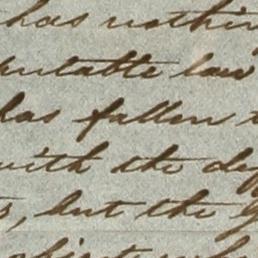 has nothin
putable law
has fallen
with the de
but the